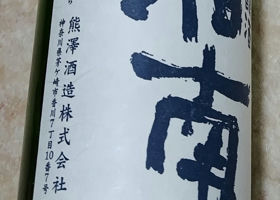 湘南
熊澤酒造株式会社
神奈川県茅ヶ崎市香川7丁目10番7号